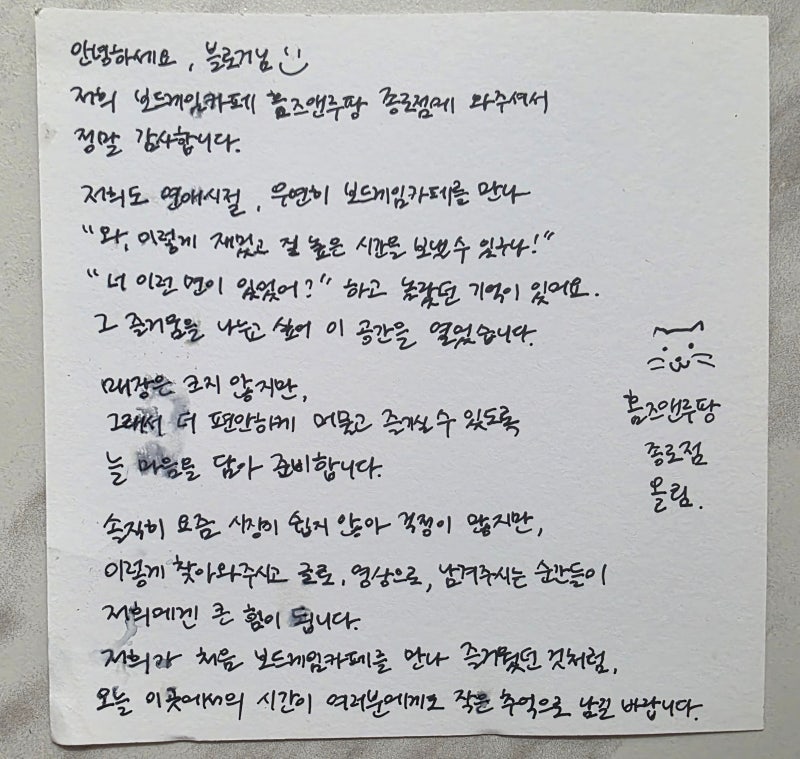 안녕하세요, 블로거님
저희 보드게임카페 홈즈앤루팡 종로점에 와주셔서
정말 감사합니다.
저희도 연애시절, 우연히 보드게임카페를 만나
"와, 이렇게 재밌고 질 높은 시간을 보낼 수 있구나!"
"너 이런 면이 있었어?" 하고 놀랐던 기억이 있어요.
그 즐거움을 나누고 싶어 이 공간을 열었습니다.
매장은 크지 않지만,
그래서 더 편안하게 머물고 즐기실 수 있도록
늘 마음을 담아 준비합니다.
솔직히 요즘 시장이 쉽지 않아 걱정이 많지만,
이렇게 찾아와주시고 글로, 영상으로, 남겨주시는 순간들이
저희에겐 큰 힘이 됩니다.
저희가 처음 보드게임카페를 만나 즐거웠던 것처럼,
오늘 이곳에서의 시간이 여러분에게도 작은 추억으로 남길 바랍니다.
홈즈앤루팡
종로점
올림.